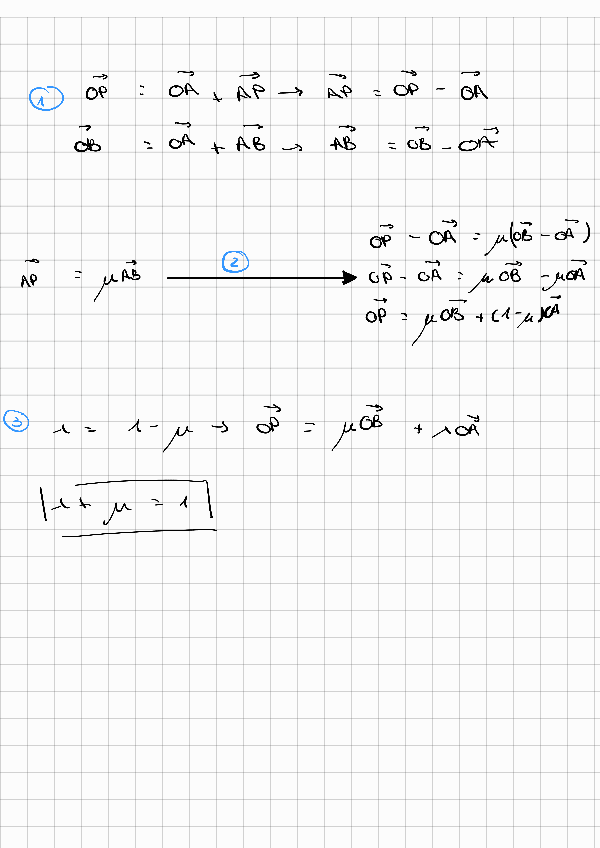 ① \vec{OP} = \vec{OA} + \vec{AP} → \vec{AP} = \vec{OP} - \vec{OA}
\vec{OB} = \vec{OA} + \vec{AB} → \vec{AB} = \vec{OB} - \vec{OA}
\vec{OP} - \vec{OA} = μ(\vec{OB} - \vec{OA})
\vec{AP} = μ\vec{AB} ② → \vec{OP} - \vec{OA} = μ\vec{OB} - μ\vec{OA}
\vec{OP} = μ\vec{OB} + (1-μ)\vec{OA}
③ λ = 1 - μ → \vec{OP} = μ\vec{OB} + λ\vec{OA}
λ + μ = 1